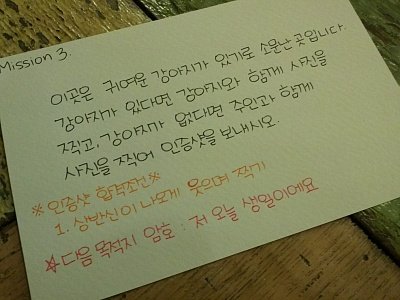 Mission 3.
이곳은 귀여운 강아지가 있기로 소문난 곳입니다.
강아지가 있다면 강아지와 함께 사진을
찍고, 강아지가 없다면 주인과 함께
사진을 찍어 인증샷을 보내시오
※ 인증샷 합격조건※
1. 상반신이 나오게 웃으며 찍기
☆다음 목적지 암호 : 저 오늘 생일이에요